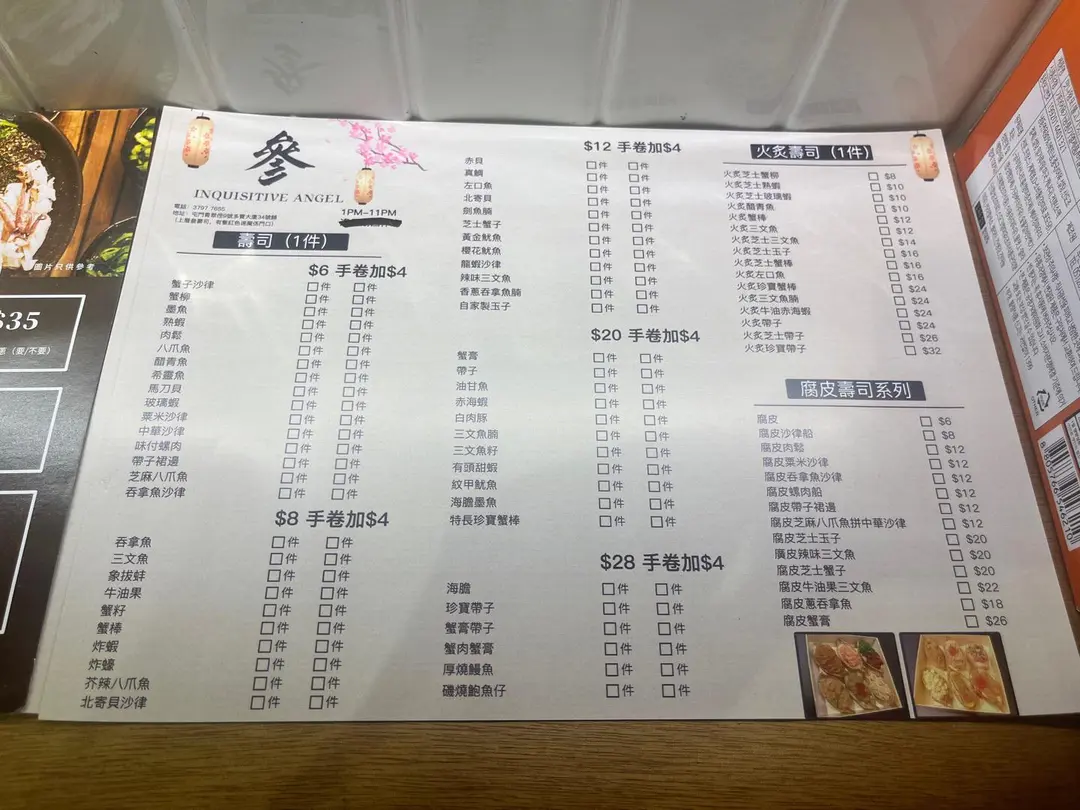 參
INQUISITIVE ANGEL
電話：3797 7655
1PM-11PM
壽司（1件）
$6 手卷加$4
蟹子沙律 □件 □件
蟹柳 □件 □件
墨魚 □件 □件
熟蝦 □件 □件
肉鬆 □件 □件
八爪魚 □件 □件
醋青魚 □件 □件
希靈魚 □件 □件
馬刀貝 □件 □件
玻璃蝦 □件 □件
粟米沙律 □件 □件
中華沙律 □件 □件
味付螺肉 □件 □件
帶子裙邊 □件 □件
芝麻八爪魚 □件 □件
吞拿魚沙律 □件 □件
$8 手卷加$4
吞拿魚 □件 □件
三文魚 □件 □件
象拔蚌 □件 □件
牛油果 □件 □件
蟹籽 □件 □件
蟹棒 □件 □件
炸蝦 □件 □件
炸蠔 □件 □件
芥辣八爪魚 □件 □件
北寄貝沙律 □件 □件
$12 手卷加$4
赤貝 □件 □件
真鯛 □件 □件
左口魚 □件 □件
北寄貝 □件 □件
劍魚腩 □件 □件
芝士蟹子 □件 □件
黃金魷魚 □件 □件
櫻花魷魚 □件 □件
龍蝦沙律 □件 □件
辣味三文魚 □件 □件
香蔥吞拿魚腩 □件 □件
自家製玉子 □件 □件
$20 手卷加$4
蟹膏 □件 □件
帶子 □件 □件
油甘魚 □件 □件
赤海蝦 □件 □件
白肉豚 □件 □件
三文魚腩 □件 □件
三文魚籽 □件 □件
有頭甜蝦 □件 □件
紋甲魷魚 □件 □件
海膽墨魚 □件 □件
特長珍寶蟹棒 □件 □件
$28 手卷加$4
海膽 □件 □件
珍寶帶子 □件 □件
蟹膏帶子 □件 □件
蟹肉蟹膏 □件 □件
厚燒鰻魚 □件 □件
磯燒鮑魚仔 □件 □件
火炙壽司（1件）
火炙芝士蟹柳 □ $8
火炙芝士熟蝦 □ $10
火炙芝士玻璃蝦 □ $10
火炙醋青魚 □ $10
火炙蟹棒 □ $12
火炙三文魚 □ $12
火炙芝士三文魚 □ $14
火炙芝士玉子 □ $16
火炙芝士蟹棒 □ $16
火炙左口魚 □ $16
火炙珍寶蟹棒 □ $24
火炙三文魚腩 □ $24
火炙牛油赤海蝦 □ $24
火炙帶子 □ $24
火炙芝士帶子 □ $26
火炙珍寶帶子 □ $32
腐皮壽司系列
腐皮 □ $6
腐皮沙律船 □ $8
腐皮肉鬆 □ $12
腐皮粟米沙律 □ $12
腐皮吞拿魚沙律 □ $12
腐皮螺肉船 □ $12
腐皮帶子裙邊 □ $12
腐皮芝麻八爪魚拼中華沙律 □ $12
腐皮芝士玉子 □ $20
腐皮辣味三文魚 □ $20
腐皮芝士蟹子 □ $20
腐皮牛油果三文魚 □ $22
腐皮蔥吞拿魚 □ $18
腐皮蟹膏 □ $26
圖片只供參考
$35
（要/不要）